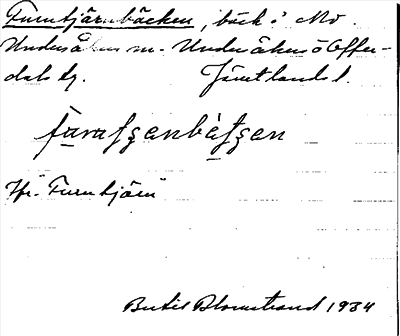 Furutjärnbäcken, bäck i Mo
Undersåkers sn. Undersåkers o Offer-
dals tg. Jämtlands l.
Jfr. Furutjärn
Bertil Blomstrand 1934